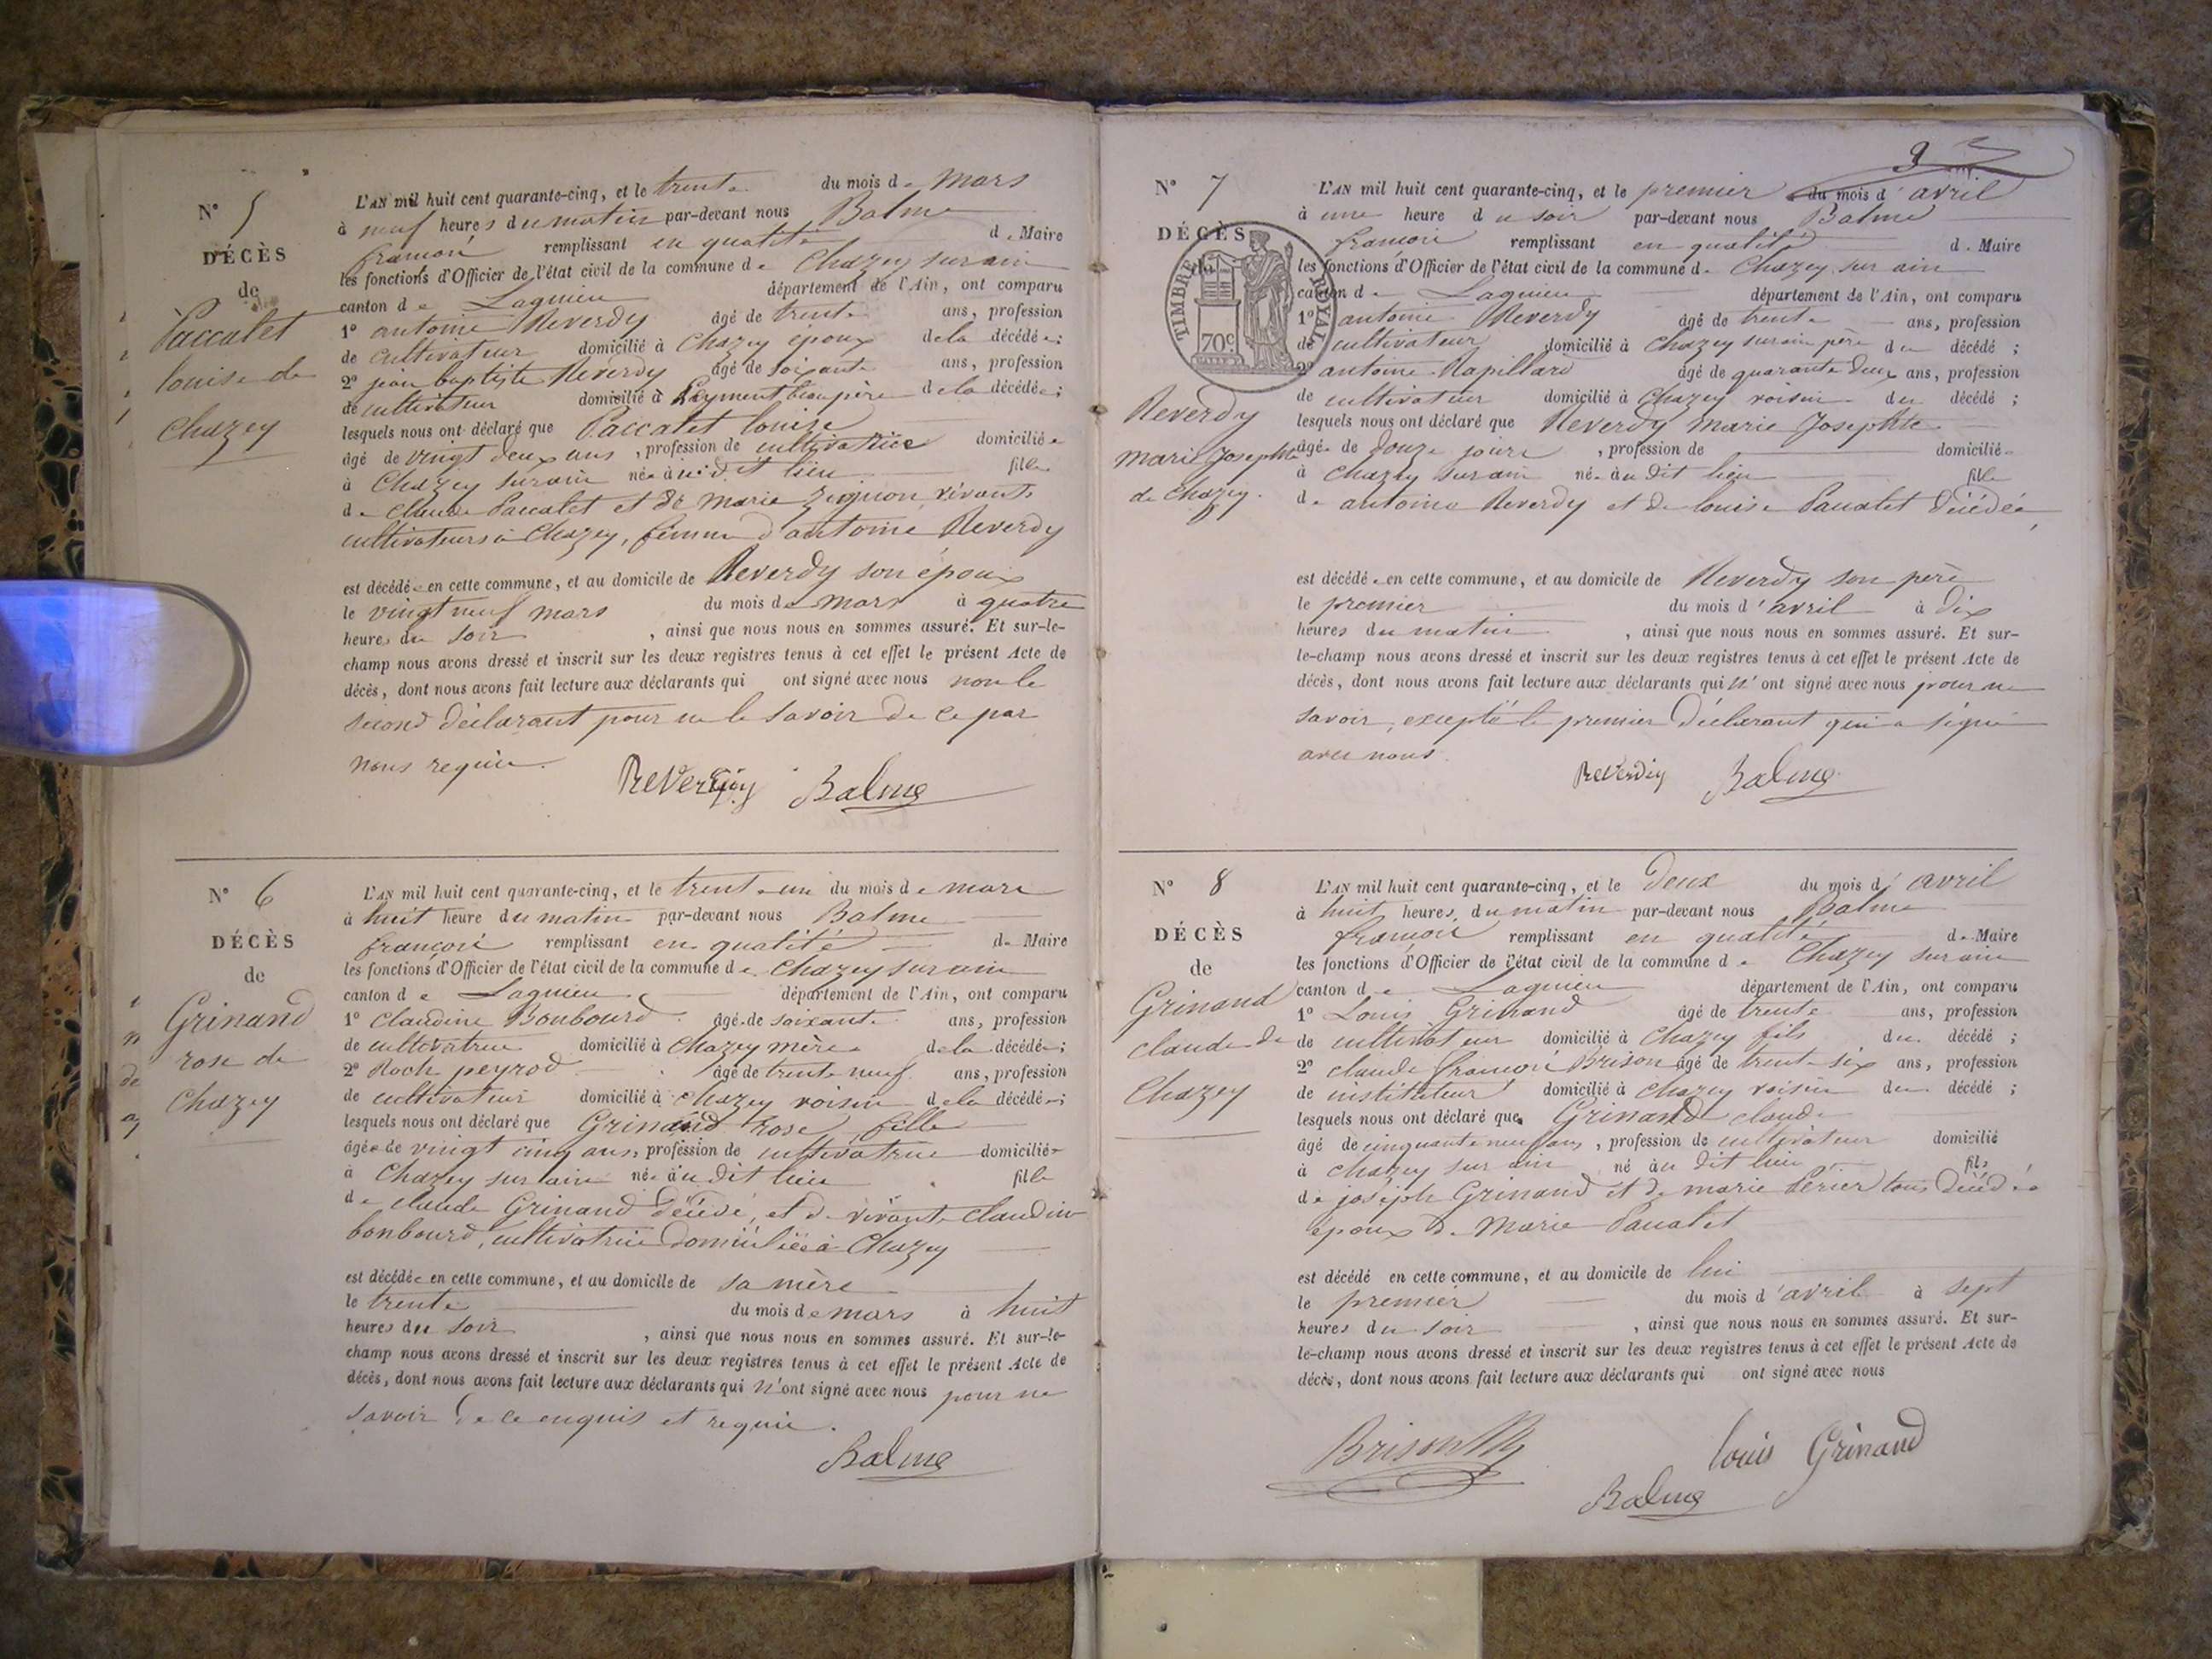 N° 5
DÉCÈS
de
Paccalet
louise de
Chazey
L'AN mil huit cent quarante-cinq, et le trente du mois de Mars
à neuf heures du matin par-devant nous Balme
françois remplissant en qualité de Maire
les fonctions d'Officier de l'état civil de la commune de Chazey sur ain
canton de Lagnieu département de l'Ain, ont comparu
1° antoine Reverdy âgé de trente ans, profession
de cultivateur domicilié à Chazey époux de la décédée;
2° jean baptiste Reverdy âgé de soixante ans, profession
de cultivateur domicilié à Leyment beau père de la décédée;
lesquels nous ont déclaré que Paccalet louise
âgé de vingt deux ans, profession de cultivatrice domiciliée
à Chazey sur ain née à dit lieu fille
de Claude Paccalet et de marie vivants
cultivateurs à Chazey, femme d'antoine Reverdy
est décédée en cette commune, et au domicile de Reverdy son époux
le vingt neuf mars du mois de mars à quatre
heures du soir, ainsi que nous nous en sommes assuré. Et sur-le-
champ nous avons dressé et inscrit sur les deux registres tenus à cet effet le présent Acte de
décès, dont nous avons fait lecture aux déclarants qui ont signé avec nous non le
second déclarant pour ne le savoir de ce par
nous requis.
Reverdy Balme
N° 6
DÉCÈS
de
Grinand
rose de
Chazey
L'AN mil huit cent quarante-cinq, et le trente un du mois de mars
à huit heure du matin par-devant nous Balme
françois remplissant en qualité de Maire
les fonctions d'Officier de l'état civil de la commune de Chazey sur ain
canton de Lagnieu département de l'Ain, ont comparu
1° Claudine Bonbourd âgé de soixante ans, profession
de cultivatrice domicilié à Chazey mère de la décédée;
2° Roch peyrod âgé de trente neuf ans, profession
de cultivateur domicilié à Chazey voisin de la décédée;
lesquels nous ont déclaré que Grinand rose fille
âgée de vingt cinq ans, profession de cultivatrice domiciliée
à Chazey sur ain née au dit lieu fille
de claude Grinand décédé, et de vivante claudine
bonbourd, cultivatrice domiciliée à Chazey
est décédée en cette commune, et au domicile de sa mère
le trente du mois de mars à huit
heures du soir, ainsi que nous nous en sommes assuré. Et sur-le-
champ nous avons dressé et inscrit sur les deux registres tenus à cet effet le présent Acte de
décès, dont nous avons fait lecture aux déclarants qui n'ont signé avec nous pour ne
savoir de ce enquis et requis.
Balme
3
N° 7
DÉCÈS
TIMBRE ROYAL
70c
Reverdy
marie Josephte
de Chazey.
L'AN mil huit cent quarante-cinq, et le premier du mois d'avril
à une heure du soir par-devant nous Balme
françois remplissant en qualité de Maire
les fonctions d'Officier de l'état civil de la commune de Chazey sur ain
canton de Lagnieu département de l'Ain, ont comparu
1° antoine Reverdy âgé de trente ans, profession
de cultivateur domicilié à Chazey sur ain père du décédé;
2° antoine Rapillard âgé de quarante deux ans, profession
de cultivateur domicilié à Chazey voisin du décédé;
lesquels nous ont déclaré que Reverdy marie Josephte
âgée de douze jours, profession de domiciliée
à Chazey sur ain née au dit lieu fille
de antoine Reverdy et de louise Paccalet décédée,
est décédée en cette commune, et au domicile de Reverdy son père
le premier du mois d'avril à dix
heures du matin, ainsi que nous nous en sommes assuré. Et sur-
le-champ nous avons dressé et inscrit sur les deux registres tenus à cet effet le présent Acte de
décès, dont nous avons fait lecture aux déclarants qui n'ont signé avec nous pour ne
savoir, excepté le premier déclarant qui a signé
avec nous.
Reverdy Balme
N° 8
DÉCÈS
de
Grinand
claude de
Chazey
L'AN mil huit cent quarante-cinq, et le deux du mois d'avril
à huit heures du matin par-devant nous Balme
françois remplissant en qualité de Maire
les fonctions d'Officier de l'état civil de la commune de Chazey sur ain
canton de Lagnieu département de l'Ain, ont comparu
1° Louis Grinand âgé de trente ans, profession
de cultivateur domicilié à Chazey fils du décédé;
2° claude françois Brison âgé de trente six ans, profession
de instituteur domicilié à Chazey voisin du décédé;
lesquels nous ont déclaré que Grinand claude
âgé de cinquante neuf ans, profession de cultivateur domicilié
à Chazey sur ain né au dit lieu fils
de joseph Grinand et de marie Périer tous décédés
époux de Marie Paccalet
est décédé en cette commune, et au domicile de lui
le premier du mois d'avril à sept
heures du soir, ainsi que nous nous en sommes assuré. Et sur-
le-champ nous avons dressé et inscrit sur les deux registres tenus à cet effet le présent Acte de
décès, dont nous avons fait lecture aux déclarants qui ont signé avec nous
Brison louis Grinand
Balme